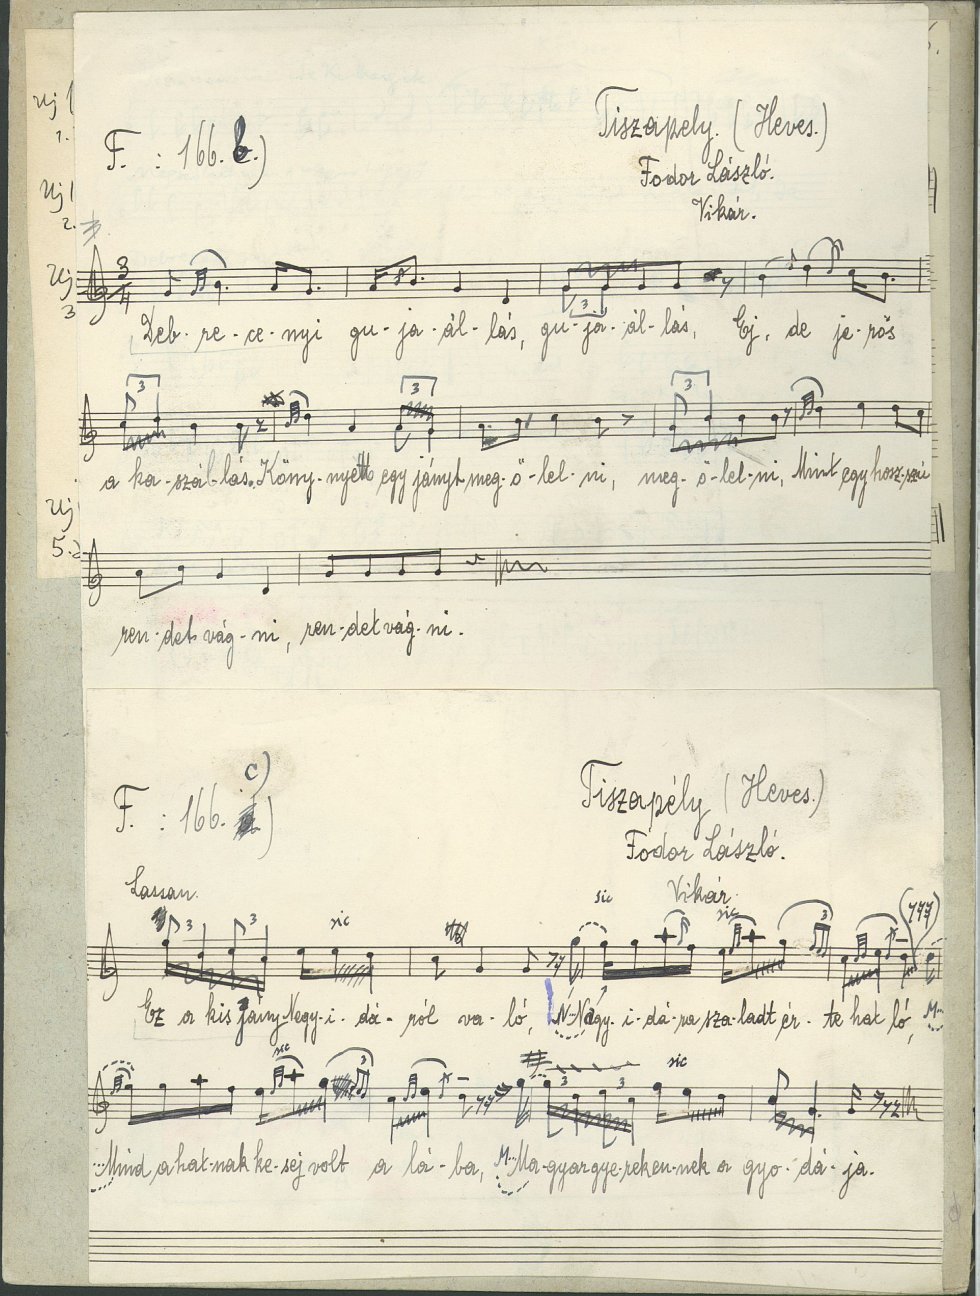 Uj 1
1.
Uj 1
2.
Uj
3
Uj
5.2
F. : 166. b.)
Tiszapély. (Heves.)
Fodor László.
Vikár.
3
4
3
Deb - re - ce - nyi gu - ja - ál - lás, gu - ja - ál - lás, Ej, de je - rös
3
3
3
a ka - szál - lás, Köny - nyett egy jányt meg - ö - lel - ni, meg - ö - lel - ni, Mint egy hosz - szú
ren - det vág - ni, ren - det vág - ni.
F. : 166. c)
Tiszapély (Heves.)
Fodor László.
Vikár.
Lassan.
3 3 sic sic sic 3
Ez a kis jány Negy - i - dá - ról va - ló, N - Nagy - i - dá - ra sza - ladt ér - te hat ló, M -
sic 3 3 3 sic
Mind a hat - nak ke - sej volt a lá - ba, M - Ma - gyar gye - reken - nek a gyo - dá - ja.